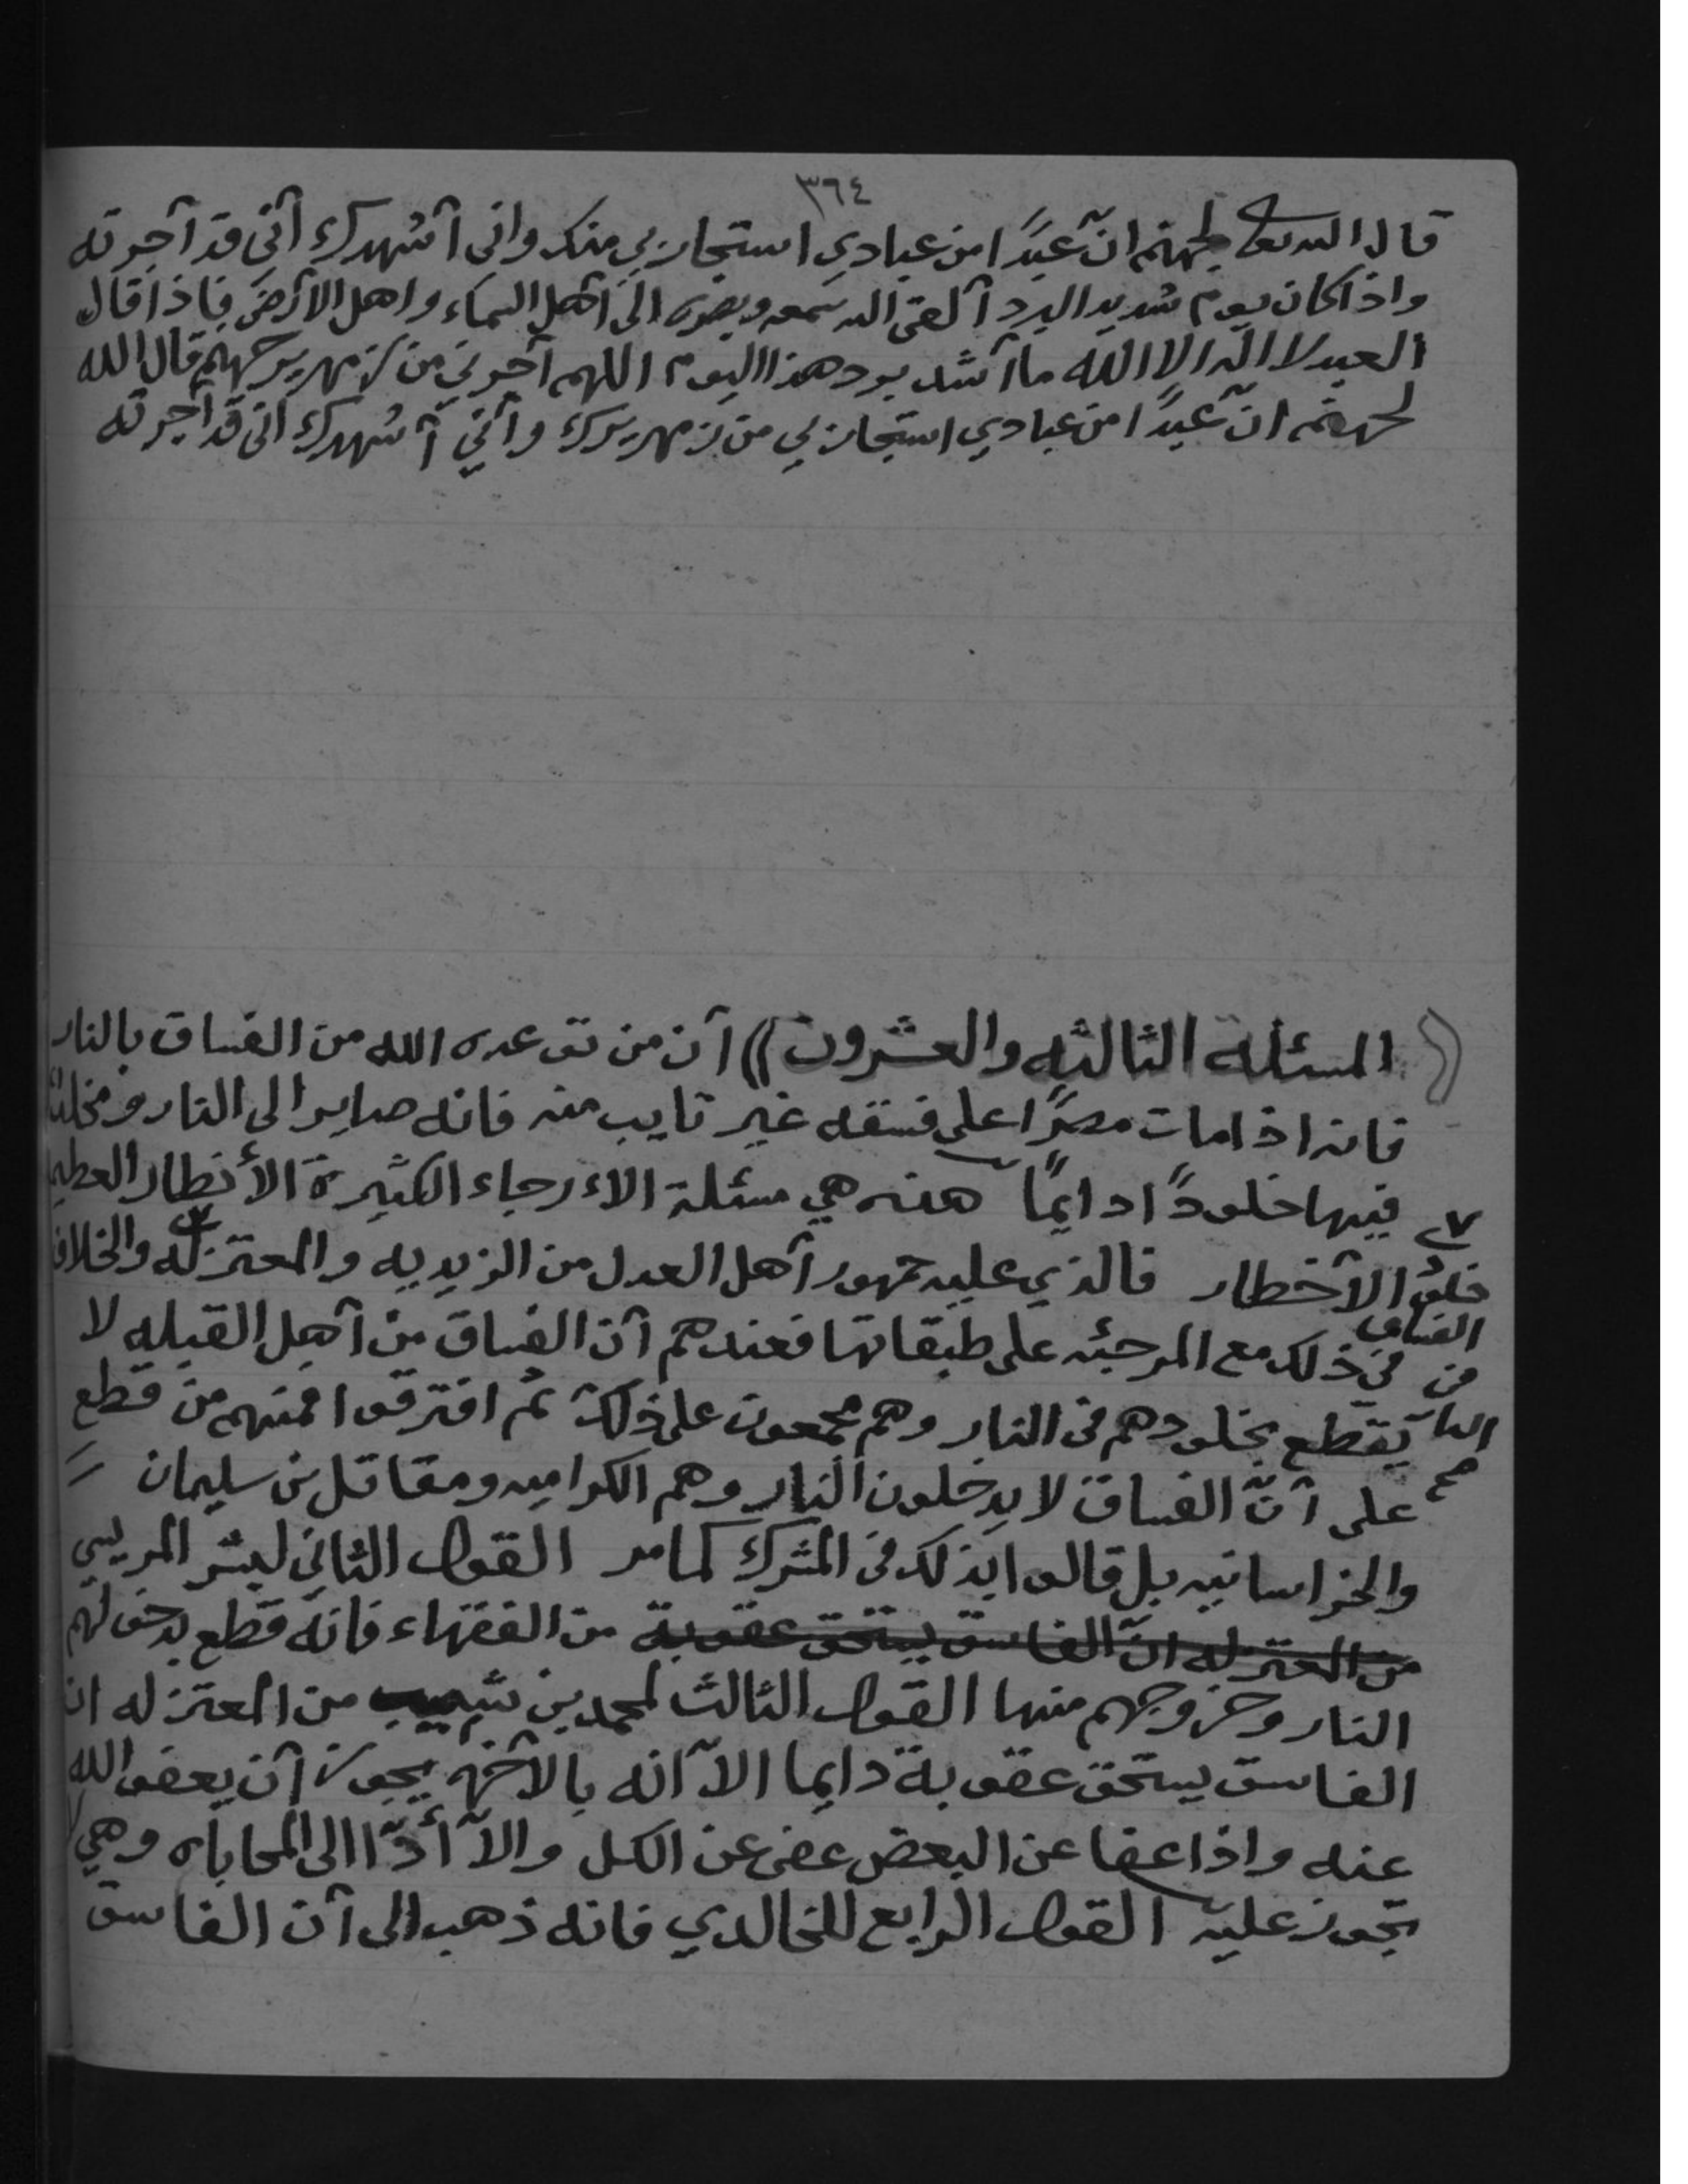 ٣٦٤
قال الله تعالى لجهنم انّ عبدًا من عبادي استجار بي منك واني أشهدك أنى قد آجرته
واذا كان يوم شديد البرد ألقى الله سمعه وبصره الى أهل السماء واهل الأرض فاذا قال
العبد لا اله الا الله ما أشد برد هذا اليوم اللهم آجرني من زمهرير جهنم قال الله
لجهنم ان عبدًا من عبادي استجار بي من زمهريرك وأني أشهدك انى قد آجرته
المسئلة الثالثه والعشرون)) أن من توعده الله من الفساق بالنار
فانه اذا مات مصرًا على فسقه غير تايب منه فانه صاير الى النار ومخلدًا
فيها خلودًا دايمًا هذه هي مسئلة الاءرجاء الكثيرة الأنطار العظيمة
الأخطار فالذي عليه جمهور أهل العدل من الزيديه والمعتزله والخلاف
خلود الفساق من النار صح
في ذلك مع المرجئه على طبقاتها فعندهم أن الفساق من أهل القبله لا
يقطع بخلودهم فى النار وهم مجمعون على ذلك ثم افترقوا فمنهم من قطع
على أنّ الفساق لا يدخلون النار وهم الكراميه ومقاتل بن سليمان
والخراسانيه بل قالوا بذلك فى المشرك كما مر القول الثاني لبشر المريسي
من المعتزله انّ الفاسق يستحق عقوبة من الفقهاء فانه قطع بدخولهم
النار وخروجهم منها القول الثالث لمحمد بن شبيب من المعتزله ان
الفاسق يستحق عقوبة دايما الا أنه بالآخره يجوز أن يعفو الله
عنه واذا عفا عن البعض عفى عن الكل والا أدّا الى المحاباه وهي لا
تجوز عليه القول الرابع للخالدي فانه ذهب الى أن الفاسق